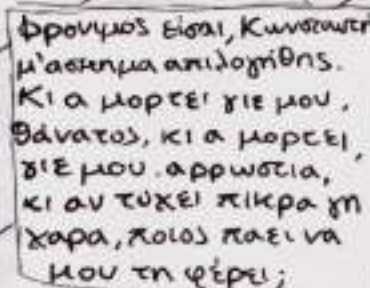 φρονιμος είσαι, Κωνσταντή
μ'ασκημα απιλογήθης.
Κι α μορτει γιε μου,
θάνατος, κι α μορτει,
γιε μου.αρρωστια,
κι αν τύχει πίκρα γη
χαρα, ποιος παει να
μου τη φέρει;